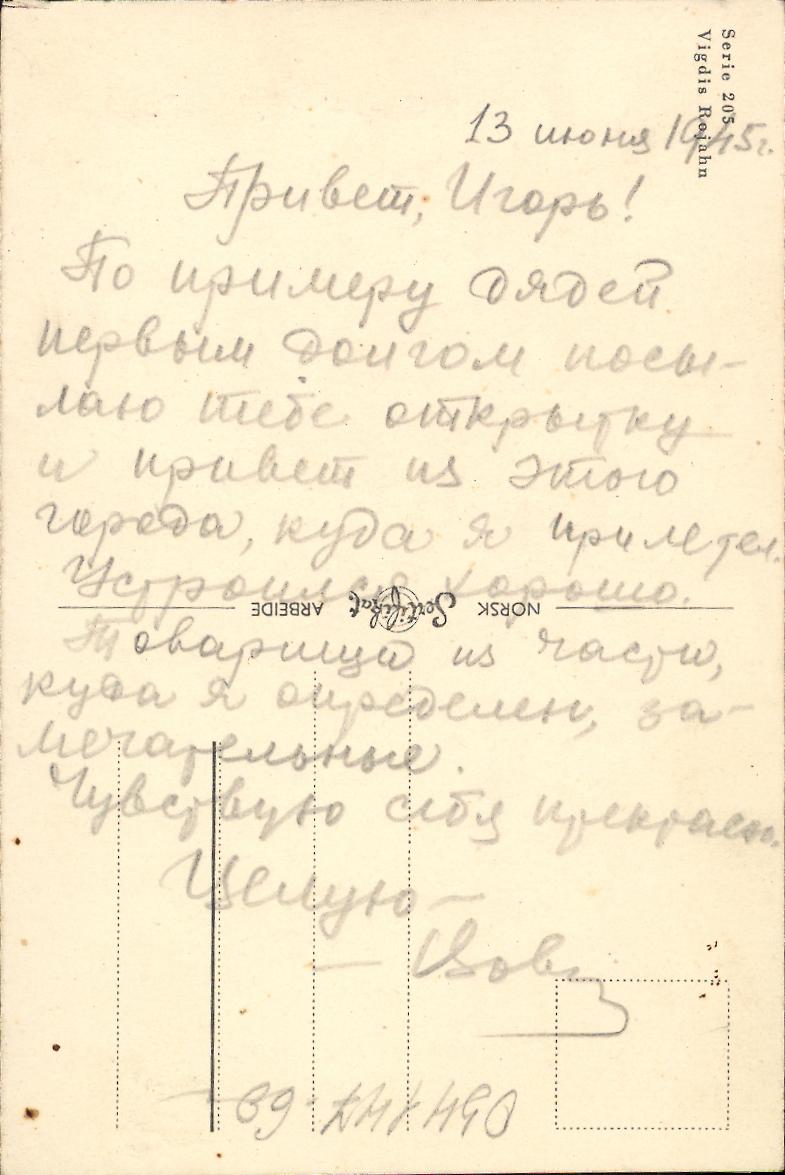 Serie 205
Vigdis Rojahn
13 июня 1945г.
Привет, Игорь!
По примеру дядей
первым долгом посы-
лаю тебе открытку
и привет из этого
города, куда я прилетел.
Устроился хорошо.
NORSK Sertifikat ARBEIDE
Товарищи из части,
куда я определен, за-
мечательные.
Чувствую себя прекрасн.
Целую —
— Вова